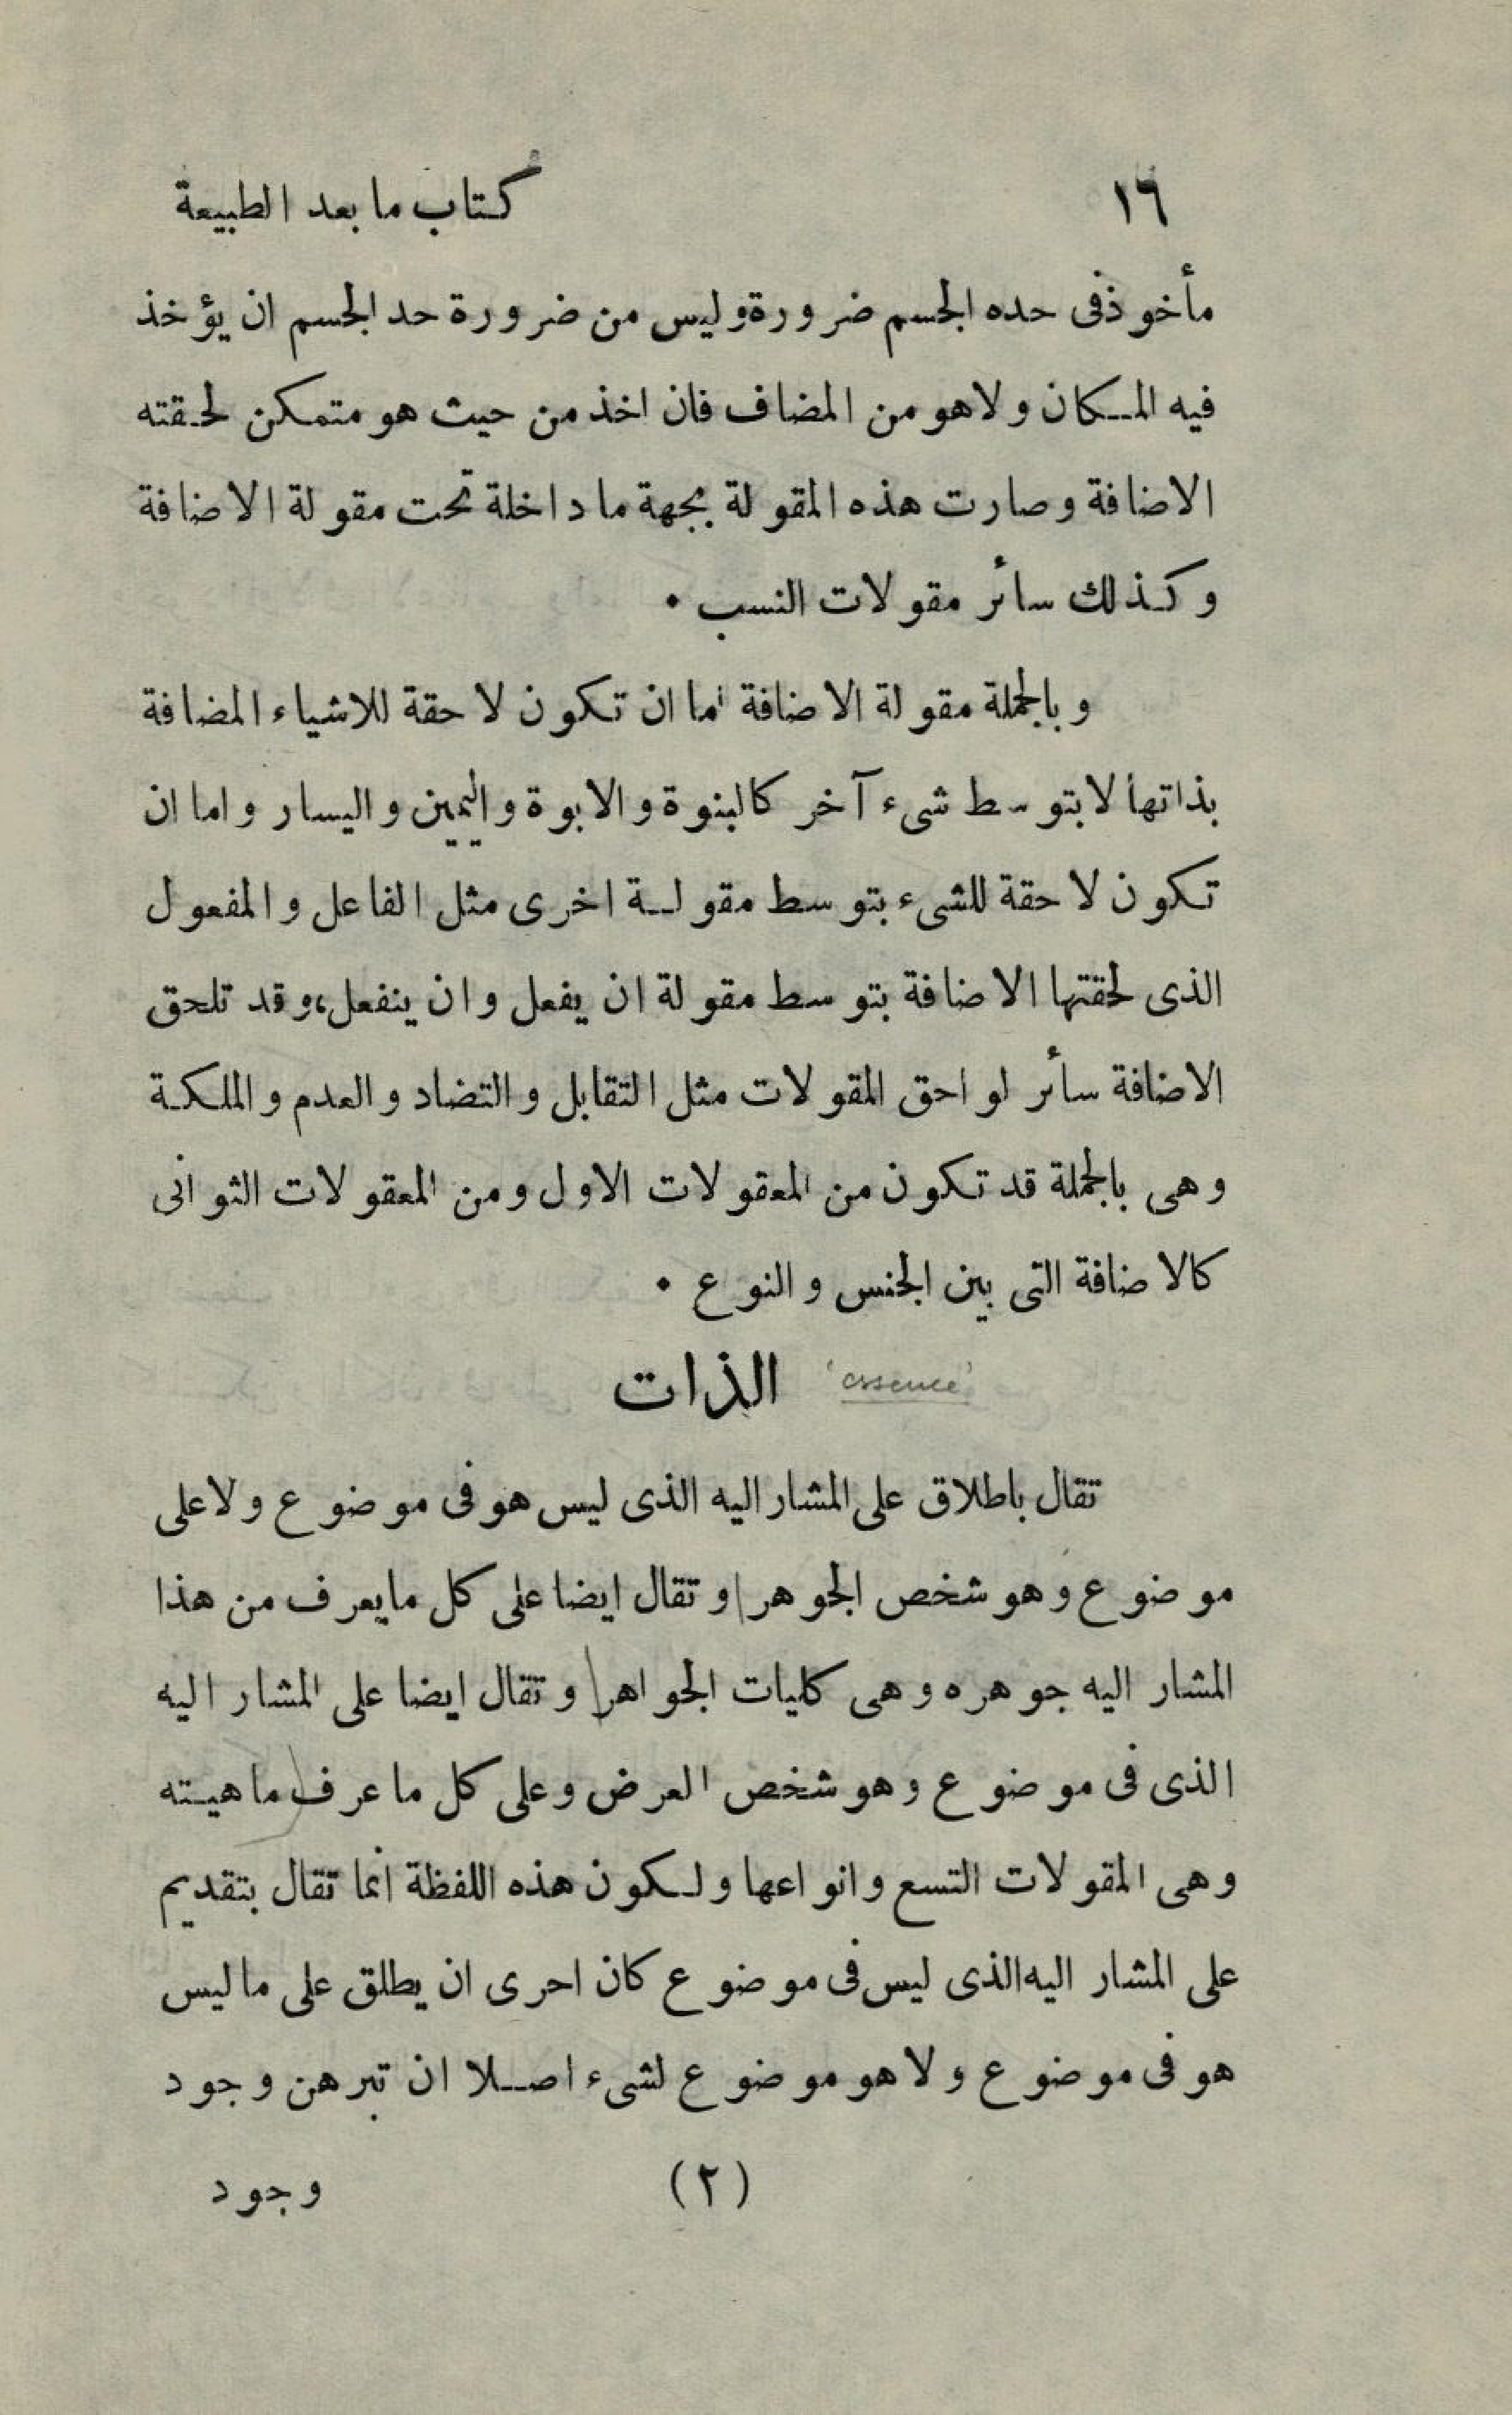 ١٦ كتاب ما بعد الطبيعة
مأخوذ فى حده الجسم ضرورة وليس من ضرورة حد الجسم ان يؤخذ
فيه المكان ولا هو من المضاف فان اخذ من حيث هو متمكن لحقته
الاضافة وصارت هذه المقولة بجهة ما داخلة تحت مقولة الاضافة
وكذلك سائر مقولات النسب ٠
وبالجملة مقولة الاضافة اما ان تكون لاحقة للاشياء المضافة
بذاتها لا بتوسط شىء آخر كالبنوة والابوة واليمين واليسار واما ان
تكون لاحقة للشىء بتوسط مقولة اخرى مثل الفاعل والمفعول
الذى لحقتها الاضافة بتوسط مقولة ان يفعل وان ينفعل، وقد تلحق
الاضافة سائر لواحق المقولات مثل التقابل والتضاد والعدم والملكة
وهى بالجملة قد تكون من المعقولات الاول ومن المعقولات الثوانى
كالاضافة التى بين الجنس والنوع ٠
الذات 'essence'
تقال باطلاق على المشار اليه الذى ليس هو فى موضوع ولا على
موضوع وهو شخص الجوهر وتقال ايضا على كل ما يعرف من هذا
المشار اليه جوهره وهى كليات الجواهر وتقال ايضا على المشار اليه
الذى فى موضوع وهو شخص العرض وعلى كل ما عرف ماهيته
وهى المقولات التسع وانواعها ولكون هذه اللفظة انما تقال بتقديم
على المشار اليه الذى ليس فى موضوع كان احرى ان يطلق على ما ليس
هو فى موضوع ولا هو موضوع لشىء اصلا ان تبرهن وجود
(٢) وجود